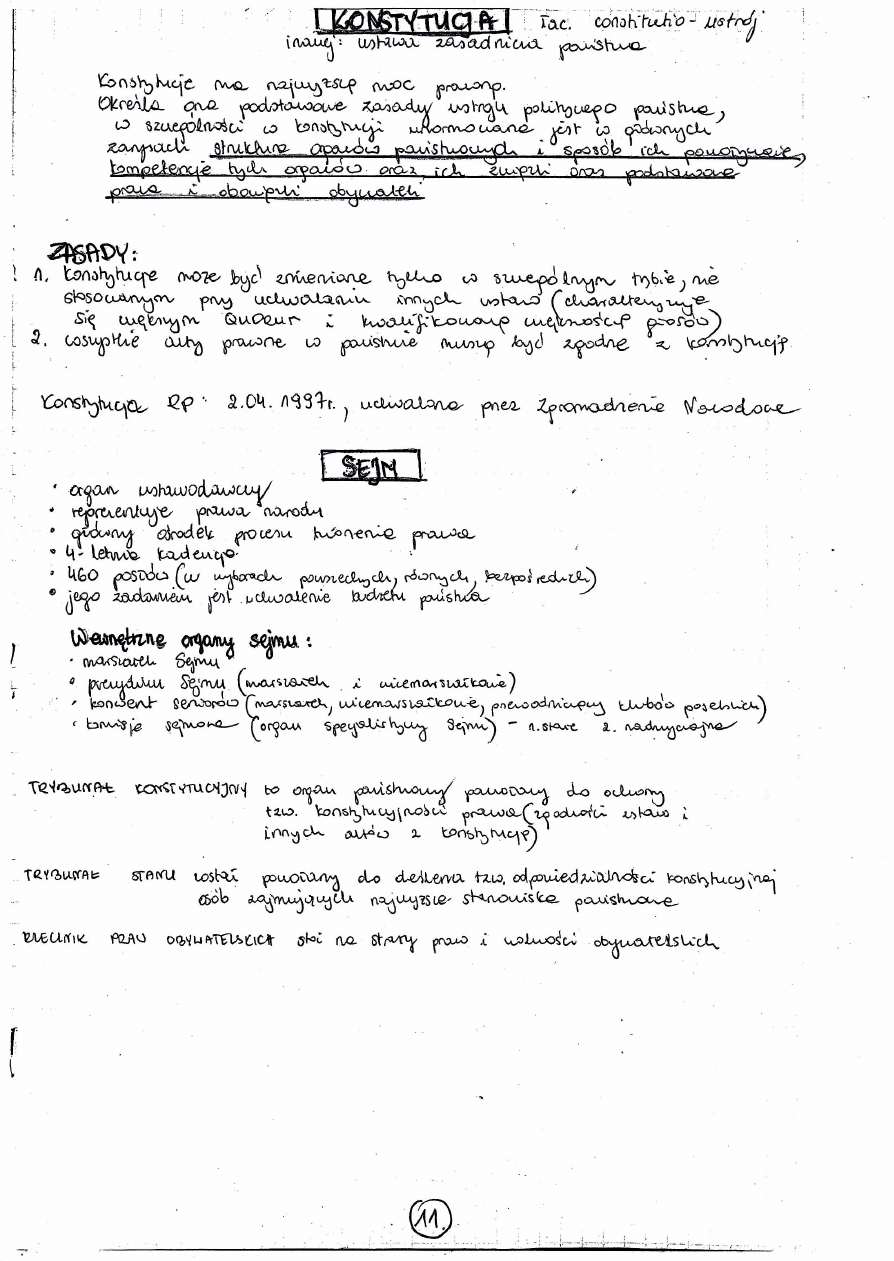 KONSTYTUCJA łac. constitutio - ustrój
inaczej: ustawa zasadnicza państwa
Konstytucja ma najwyższą moc prawną.
Określa ona podstawowe zasady ustroju politycznego państwa,
w szczególności w konstytucji unormowane jest w głównych
zarysach struktura organów państwowych i sposób ich powoływania,
kompetencje tych organów oraz ich związki oraz podstawowe
prawa i obowiązki obywateli
ZASADY:
1. Konstytucja może być zmieniana tylko w szczególnym trybie, nie
stosowanym przy uchwalaniu innych ustaw (charakteryzuje
się większym quorum i kwalifikowaną większością głosów)
2. wszystkie akty prawne w państwie muszą być zgodne z konstytucją.
Konstytucja RP: 2.04.1997r., uchwalona przez Zgromadzenie Narodowe
SEJM
• organ ustawodawczy
• reprezentuje prawa narodu
• główny ośrodek procesu tworzenia prawa
• 4-letnia kadencja
• 460 posłów (w wyborach powszechnych, równych, bezpośrednich)
• jego zadaniem jest uchwalenie budżetu państwa
Wewnętrzne organy sejmu:
• marszałek Sejmu
• prezydium Sejmu (marszałek i wicemarszałkowie)
• konwent seniorów (marszałek, wicemarszałkowie, przewodniczący klubów poselskich)
• komisje sejmowe (organ specjalistyczny Sejmu) - 1. stałe 2. nadzwyczajne
TRYBUNAŁ KONSTYTUCYJNY to organ państwowy powołany do ochrony
tzw. konstytucyjności prawa (zgodności ustaw i
innych aktów z konstytucją)
TRYBUNAŁ STANU został powołany do orzekania tzw. odpowiedzialności konstytucyjnej
osób zajmujących najwyższe stanowiska państwowe
RZECZNIK PRAW OBYWATELSKICH stoi na straży praw i wolności obywatelskich
11.